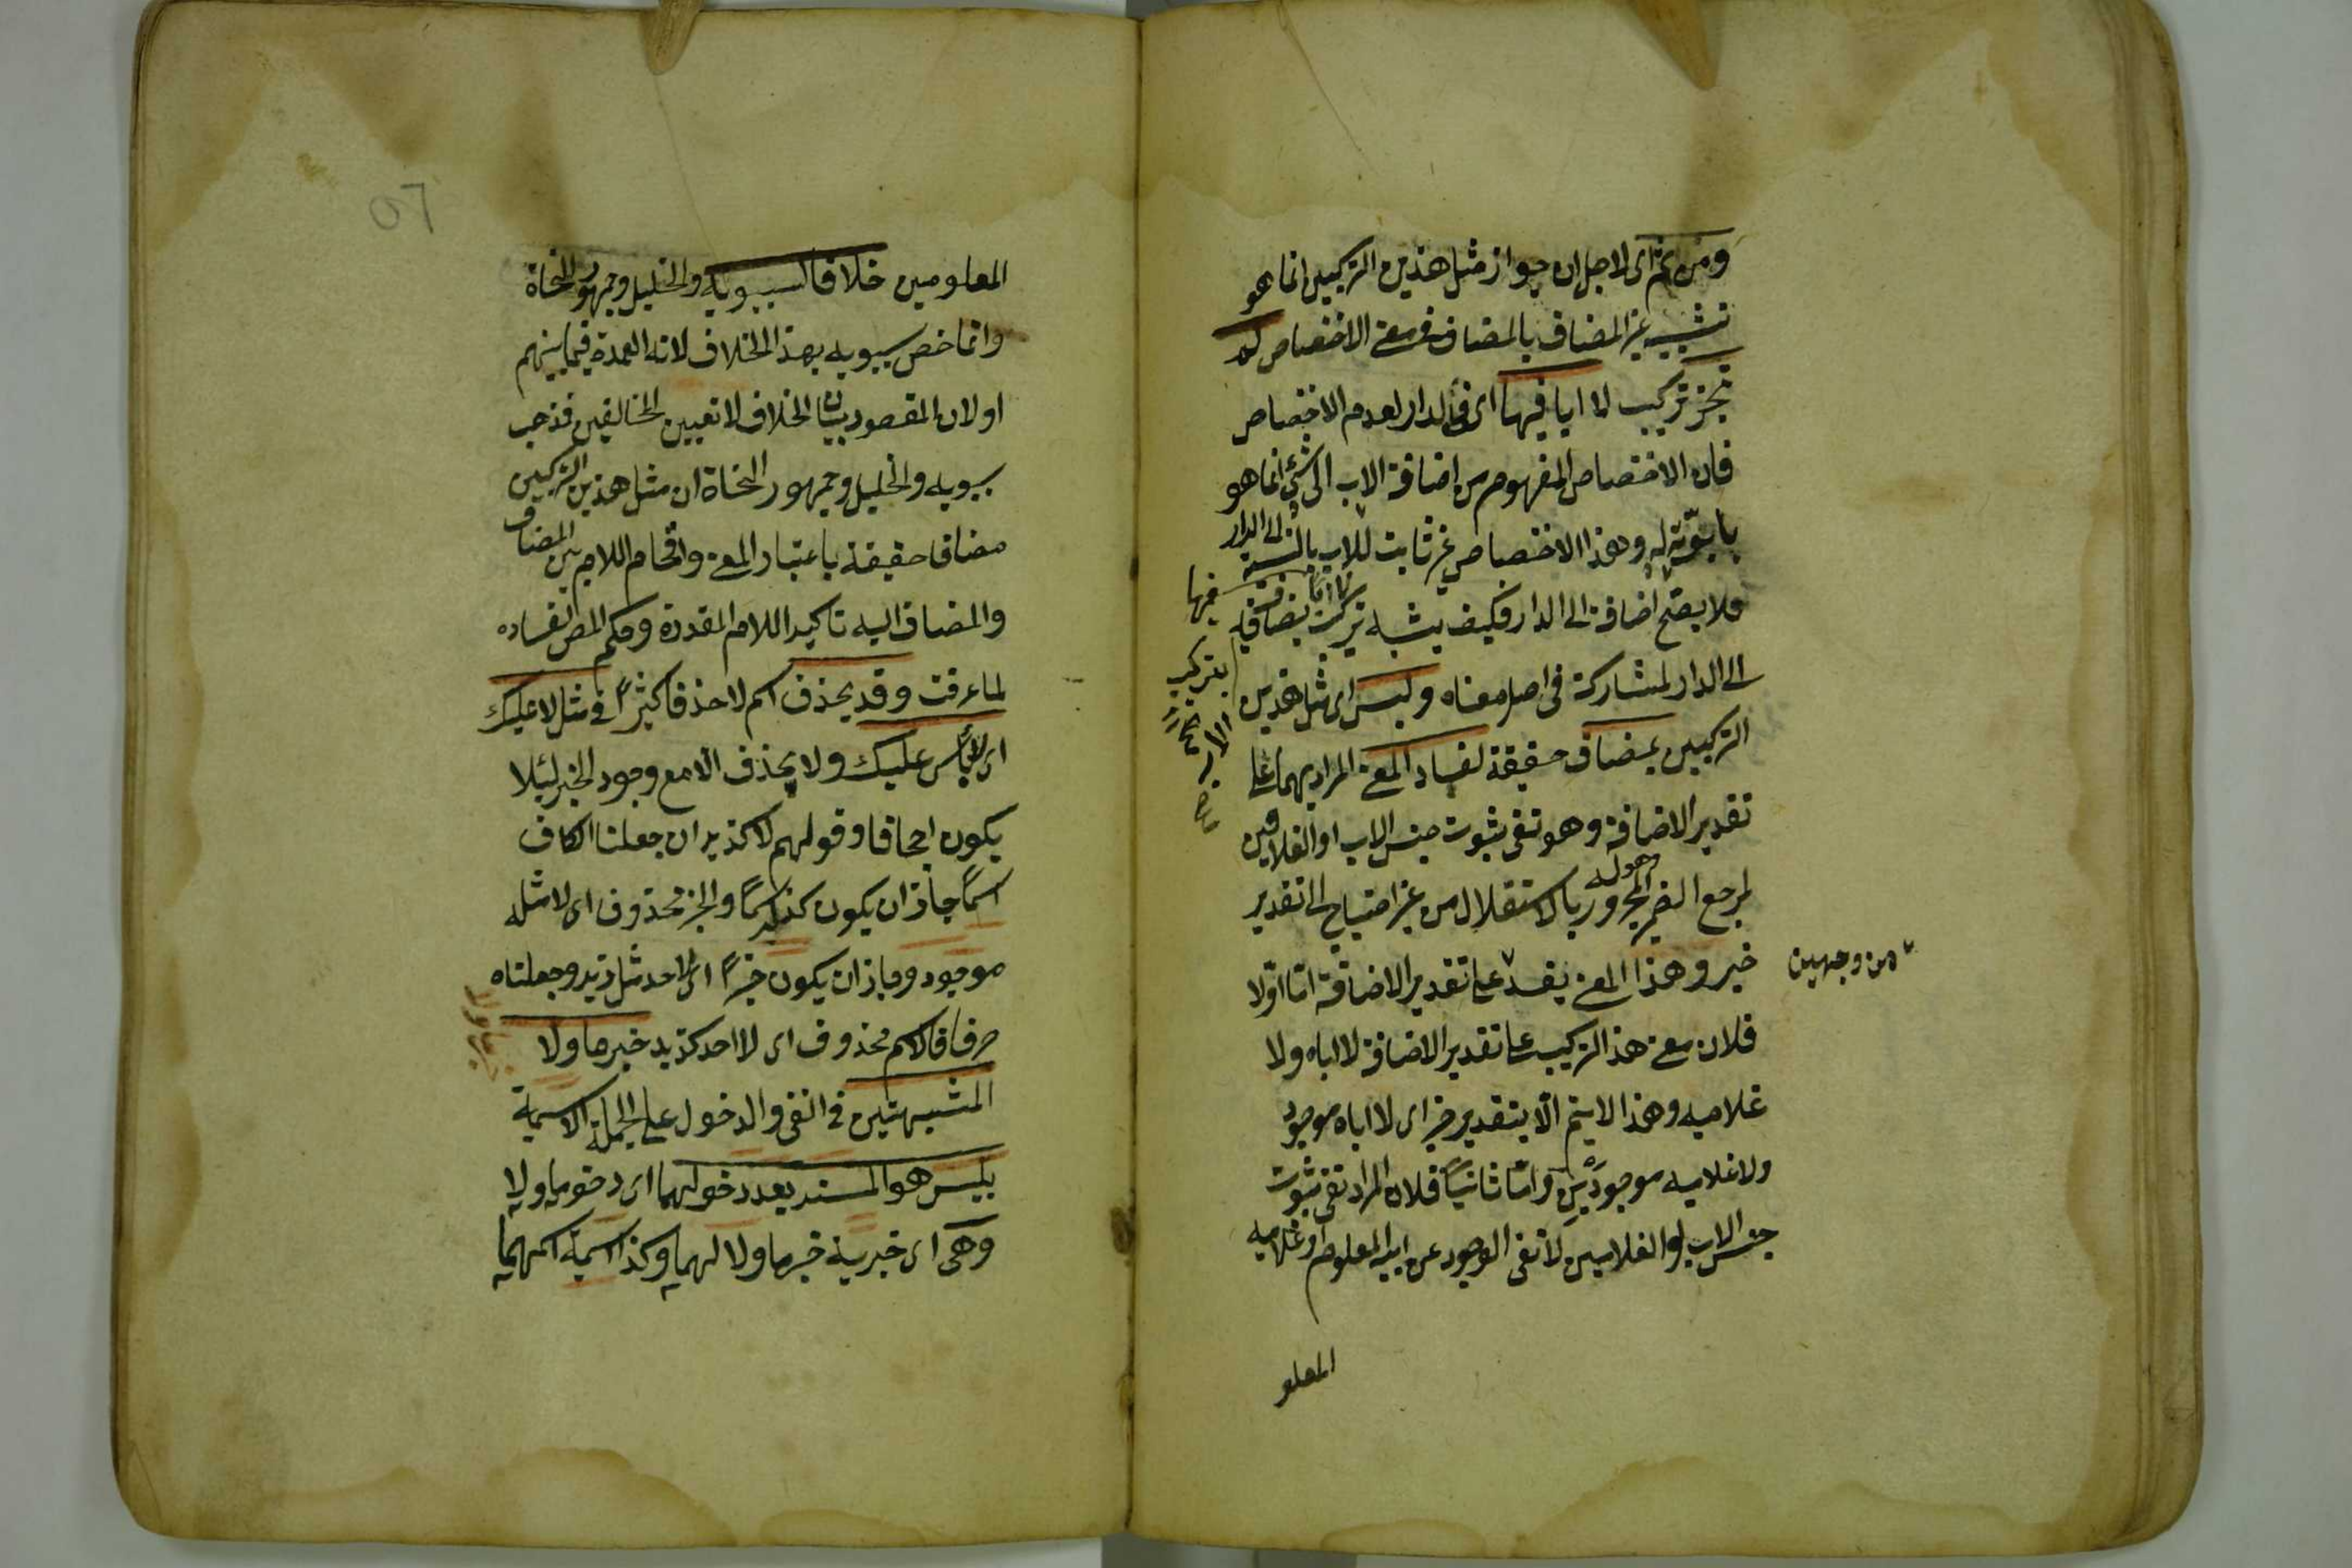 ومن ثم اى لاجل ان جواز مثل هذين التركيبين انما هو
تشبيه غير المضاف بالمضاف فى معنى الاختصاص لم
يجز تركيب لا ابا فيها اى فى الدار لعدم الاختصاص
فان الاختصاص المفهوم من اضافة الاب الى شئ انما هو
بابوته له وهذا الاختصاص غير ثابت للاب بالنسبة الى الدار
فلا يصح اضافته الى الدار فكيف يشبه تركيب لا ابا فيها بتركيب يضاف فيه الاب
الى الدار لمشاركته فى اصل معناه وليس اى مثل هذين
التركيبين بمضاف حقيقة لفساد المعنى المراد بهما على
تقدير الاضافة وهو نفى ثبوت جنس الاب او الغلامين
لمرجع الضمير المجرور بالاستقلال من غير احتياج الى تقدير
خبر وهذا المعنى يفسد على تقدير الاضافة اما اولا
من وجهين
فلان معنى هذا التركيب على تقدير الاضافة لا اباه ولا
غلاميه وهذا لا يتم الا بتقدير خبر اى لا اباه موجود
ولا غلاميه موجودين واما ثانيا فلان المراد نفى ثبوت
جنس الاب او الغلامين لا نفى الوجود عن ابيه المعلوم او غلاميه
المعلو
المعلومين خلافا لسيبويه والخليل وجمهور النحاة
وانما خص سيبويه بهذا الخلاف لانه العمدة فيما بينهم
او لان المقصود بيان الخلاف لا تعيين المخالفين فذهب
سيبويه والخليل وجمهور النحاة ان مثل هذين التركيبين
مضاف حقيقة باعتبار المعنى واقحام اللام بين المضاف
والمضاف اليه تاكيد اللام المقدرة وحكم المص بفساده
لما عرفت وقد يحذف اسم لا حذفا كثيرا فى مثل لا عليك
اى لا بأس عليك ولا يحذف الا مع وجود الخبر لئلا
يكون اجحافا وقولهم لا كزيد ان جعلنا الكاف
اسما جاز ان يكون كزيد اسما والخبر محذوف اى لا مثله
موجود وجاز ان يكون خبرا اى لا احد مثل زيد وجعلناه
حرفا فالاسم محذوف اى لا احد كزيد خبر ما ولا
المشبهتين فى النفى والدخول على الجملة الاسمية
بليس هو المسند بعد دخولهما اى دخول ما ولا
وهى اى خبرية خبر ما ولا لهما وكذا اسمية اسمهما